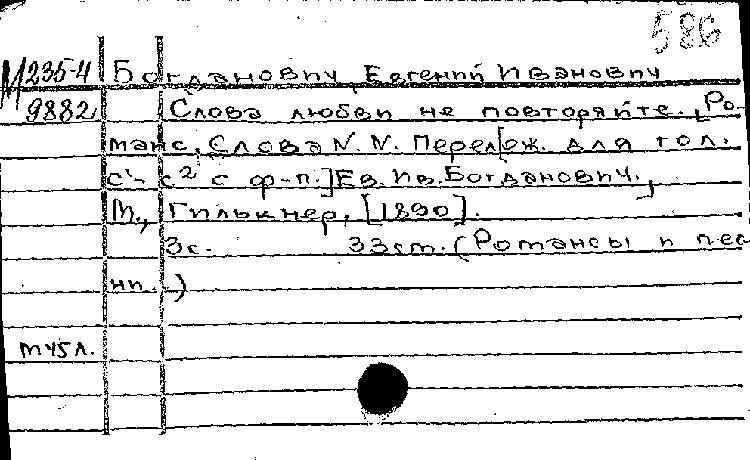 586
М 235-4 Богданович, Евгений Иванович
9882 Слова любви не повторяйте. [Ро-
манс, Слова N. N. Перелож. для гол.
с¹- с² с ф-п.] Ев. Ив. Богданович.,
М., Гилькнер, [1890].
3с. 33см. (Романсы и пес
ни.)
м45л.